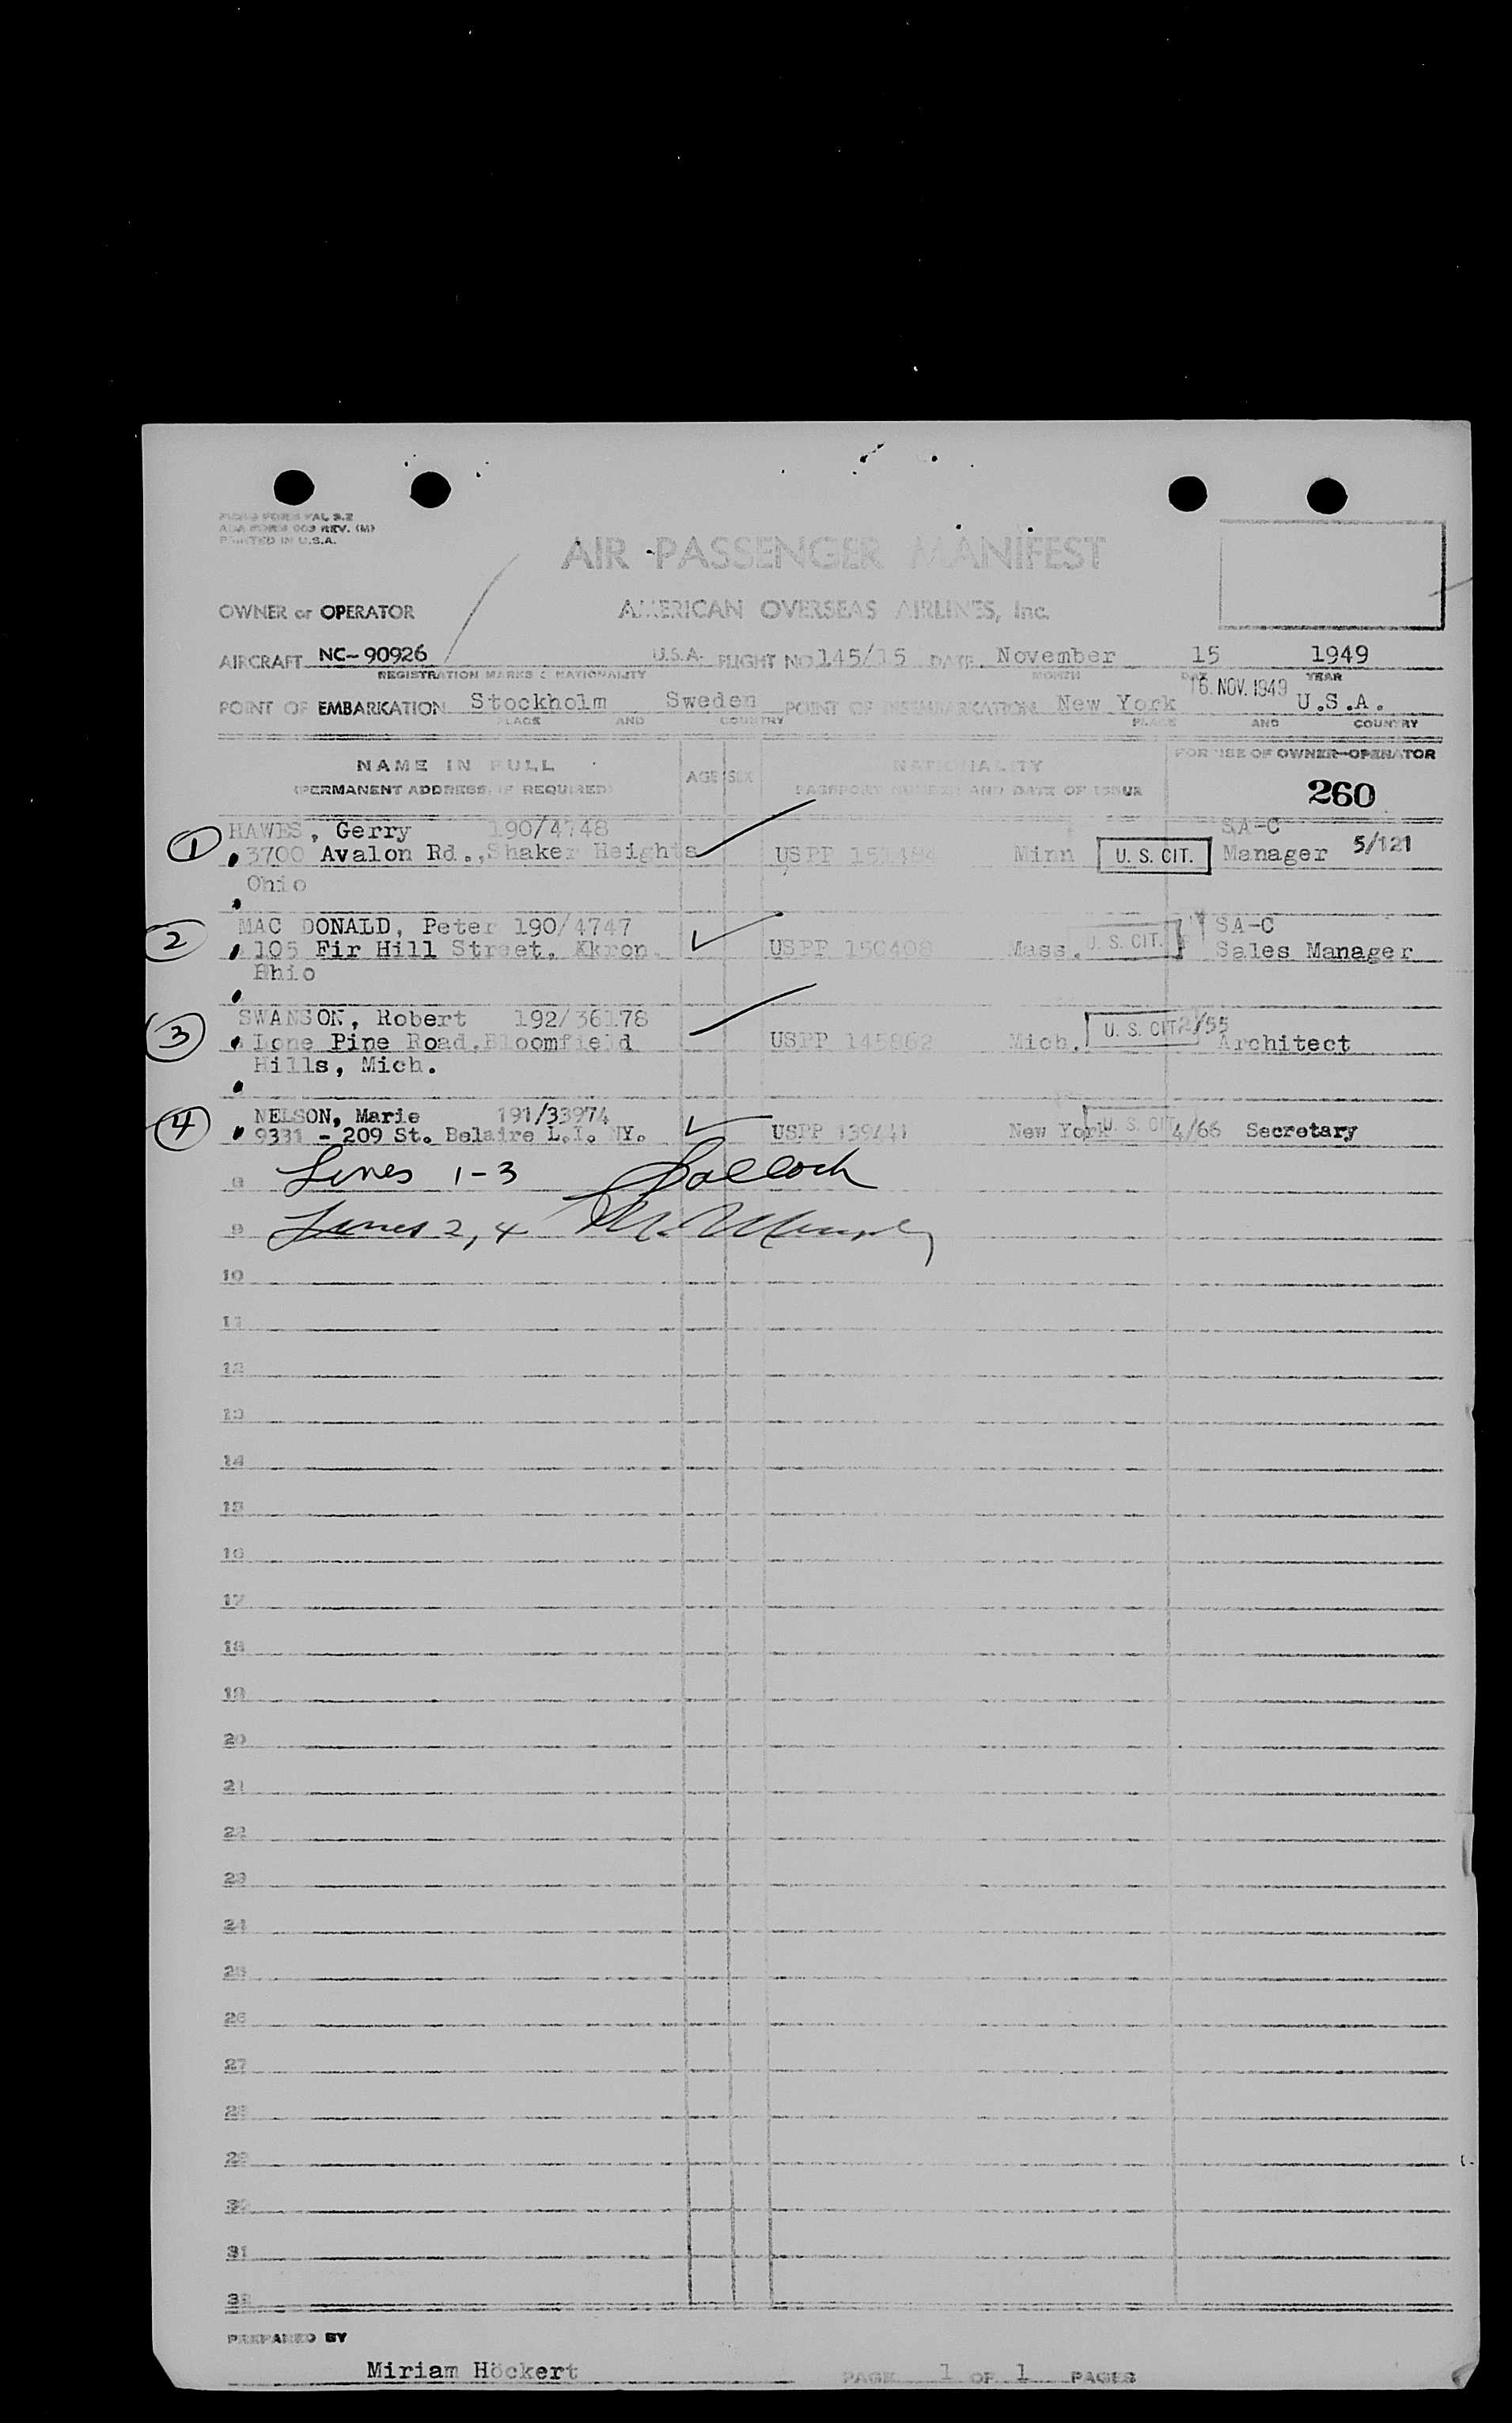 PRINTED IN U.S.A.
AIR PASSENGER MANIFEST
OWNER or OPERATOR AMERICAN OVERSEAS AIRLINES, Inc.
AIRCRAFT NC-90926 U.S.A. FLIGHT NO 145/15 DATE November 15 1949
REGISTRATION MARKS & NATIONALITY MONTH DAY YEAR
16. NOV. 1949
POINT OF EMBARKATION Stockholm Sweden POINT OF DISEMBARKATION New York U.S.A.
PLACE AND COUNTRY PLACE AND COUNTRY
NAME IN FULL AGE SEX NATIONALITY FOR USE OF OWNER-OPERATOR
(PERMANENT ADDRESS, IF REQUIRED) PASSPORT NUMBER AND DATE OF ISSUE 260
HAWES, Gerry 190/4748 SA-C
1 3700 Avalon Rd., Shaker Heights USPP Minn U. S. CIT. Manager 5/121
Ohio
MAC DONALD, Peter 190/4747 SA-C
2 105 Fir Hill Street, Akron USPP 150408 Mass. U. S. CIT. Sales Manager
Ohio
SWANSON, Robert 192/36178
3 Lone Pine Road, Bloomfield USPP 145862 Mich. U. S. CIT 2/55 Architect
Hills, Mich.
NELSON, Marie 191/33974
4 9331 - 209 St. Belaire L.I. NY. USPP New York U. S. CIT 4/66 Secretary
8 Lines 1-3
9 Lines 2, 4
10
11
12
13
14
15
16
17
18
19
20
21
22
23
24
25
26
27
28
29
30
31
32
PREPARED BY
Miriam Höckert PAGE 1 OF 1 PAGES